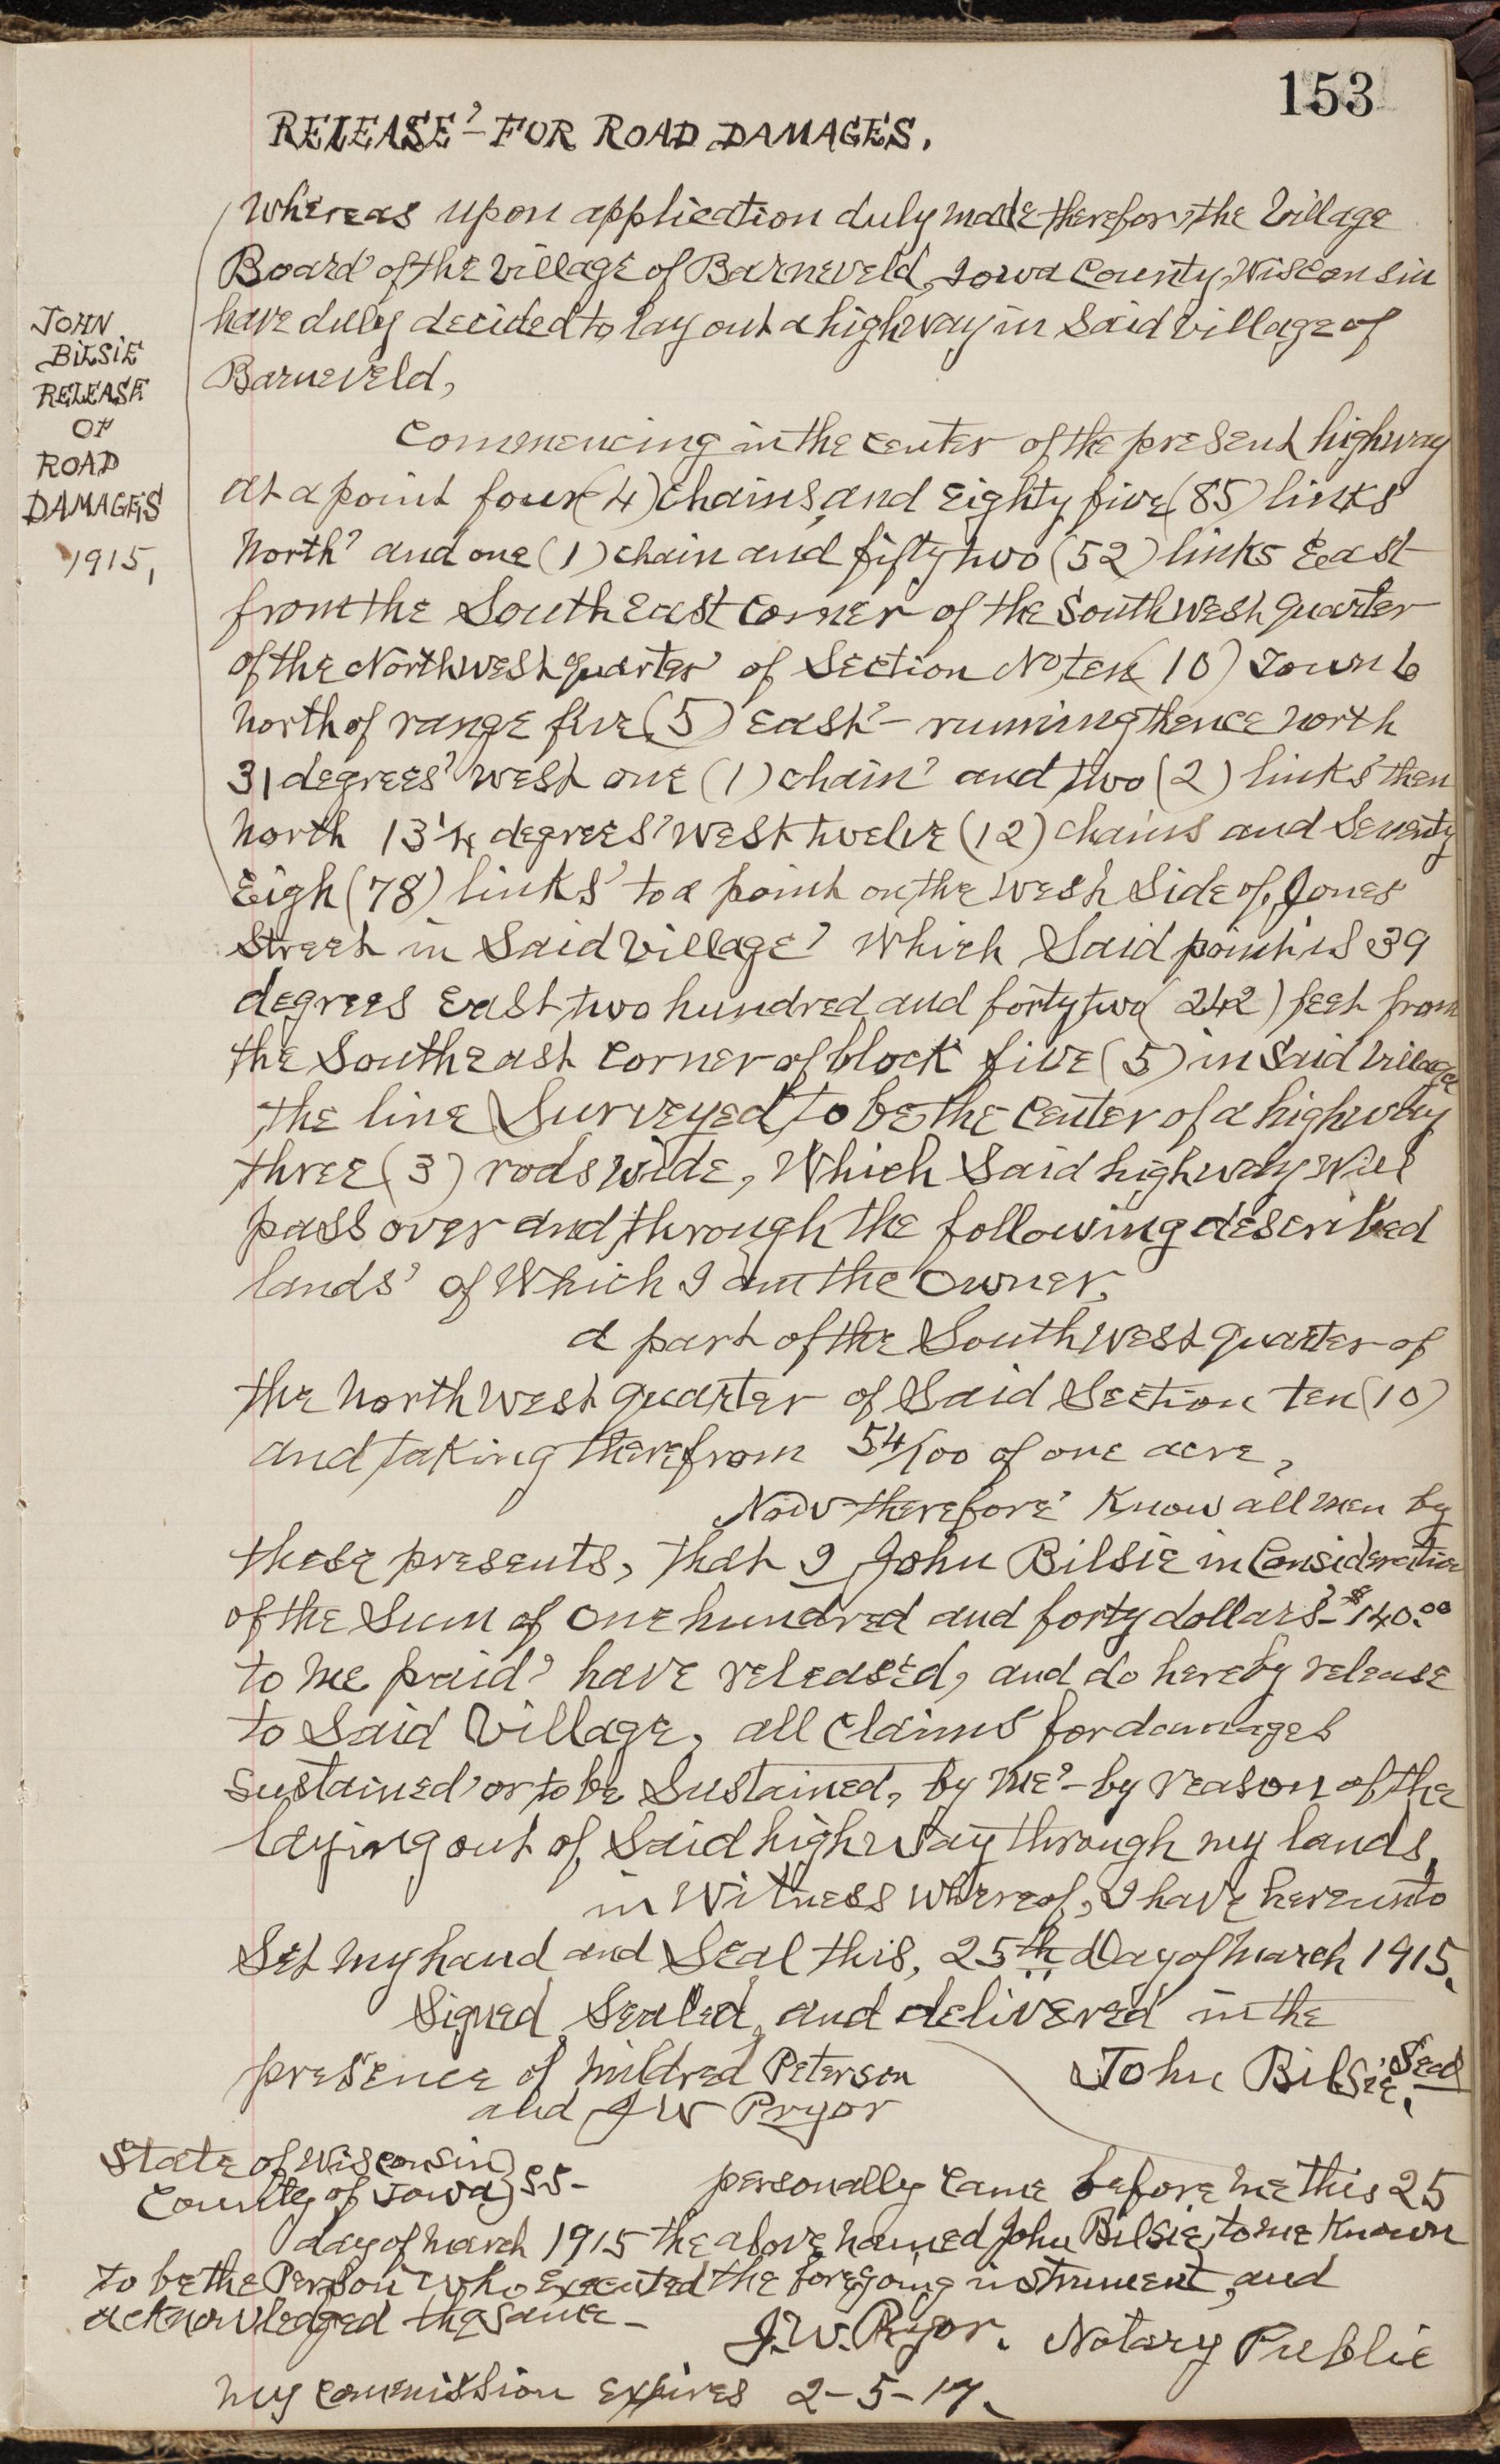 153
RELEASE - FOR ROAD DAMAGES.
Whereas upon application duly made therefor, the Village
Board of the Village of Barneveld, Iowa County, Wisconsin
have duly decided to lay out a highway in Said Village of
Barneveld,
JOHN
BILSIE
RELEASE
OF
ROAD
DAMAGES
1915,
Commencing in the center of the present highway
at a point four (4) Chains, and Eighty five (85) links
North and one (1) chain and fifty two (52) links East
from the South East Corner of the South West quarter
of the North west quarter of Section No ten (10) Town 6
North of range five (5) East - running thence North
31 degrees West one (1) chain and two (2) links then
North 13 1/4 degrees West twelve (12) Chains and Seventy
Eigh (78) links to a point on the West Side of Jones
Street in Said Village Which Said point is 39
degrees East two hundred and forty two (242) feet from
the South East Corner of block five (5) in Said Village
the line Surveyed to be the Center of a highway
three (3) rods wide, Which Said highway Will
pass over and through the following described
lands of Which I am the Owner,
a part of the South West quarter of
the North West quarter of Said Section ten (10)
and taking therefrom 54/100 of one acre,
Now therefore Know all Men by
these presents, that I John Bilsie in Consideration
of the Sum of One hundred and forty dollars - $140.00
to Me paid have released, and do hereby release
to Said Village, all Claims for damages
Sustained or to be Sustained, by Me - by reason of the
laying out of Said highway through my lands,
in Witness Whereof, I have hereunto
Set My hand and Seal this, 25th Day of March 1915.
Signed Sealed, and delivered in the
presence of Mildred Peterson
John Bilsie, Seal
and J W Pryor
State of Wisconsin
County of Iowa } SS -
personally Came before Me this 25
day of March 1915 the above named John Bilsie, to me Known
to be the Person who executed the foregoing instrument, and
acknowledged the same -
J. W. Pryor. Notary Public
My Commission Expires 2-5-17.